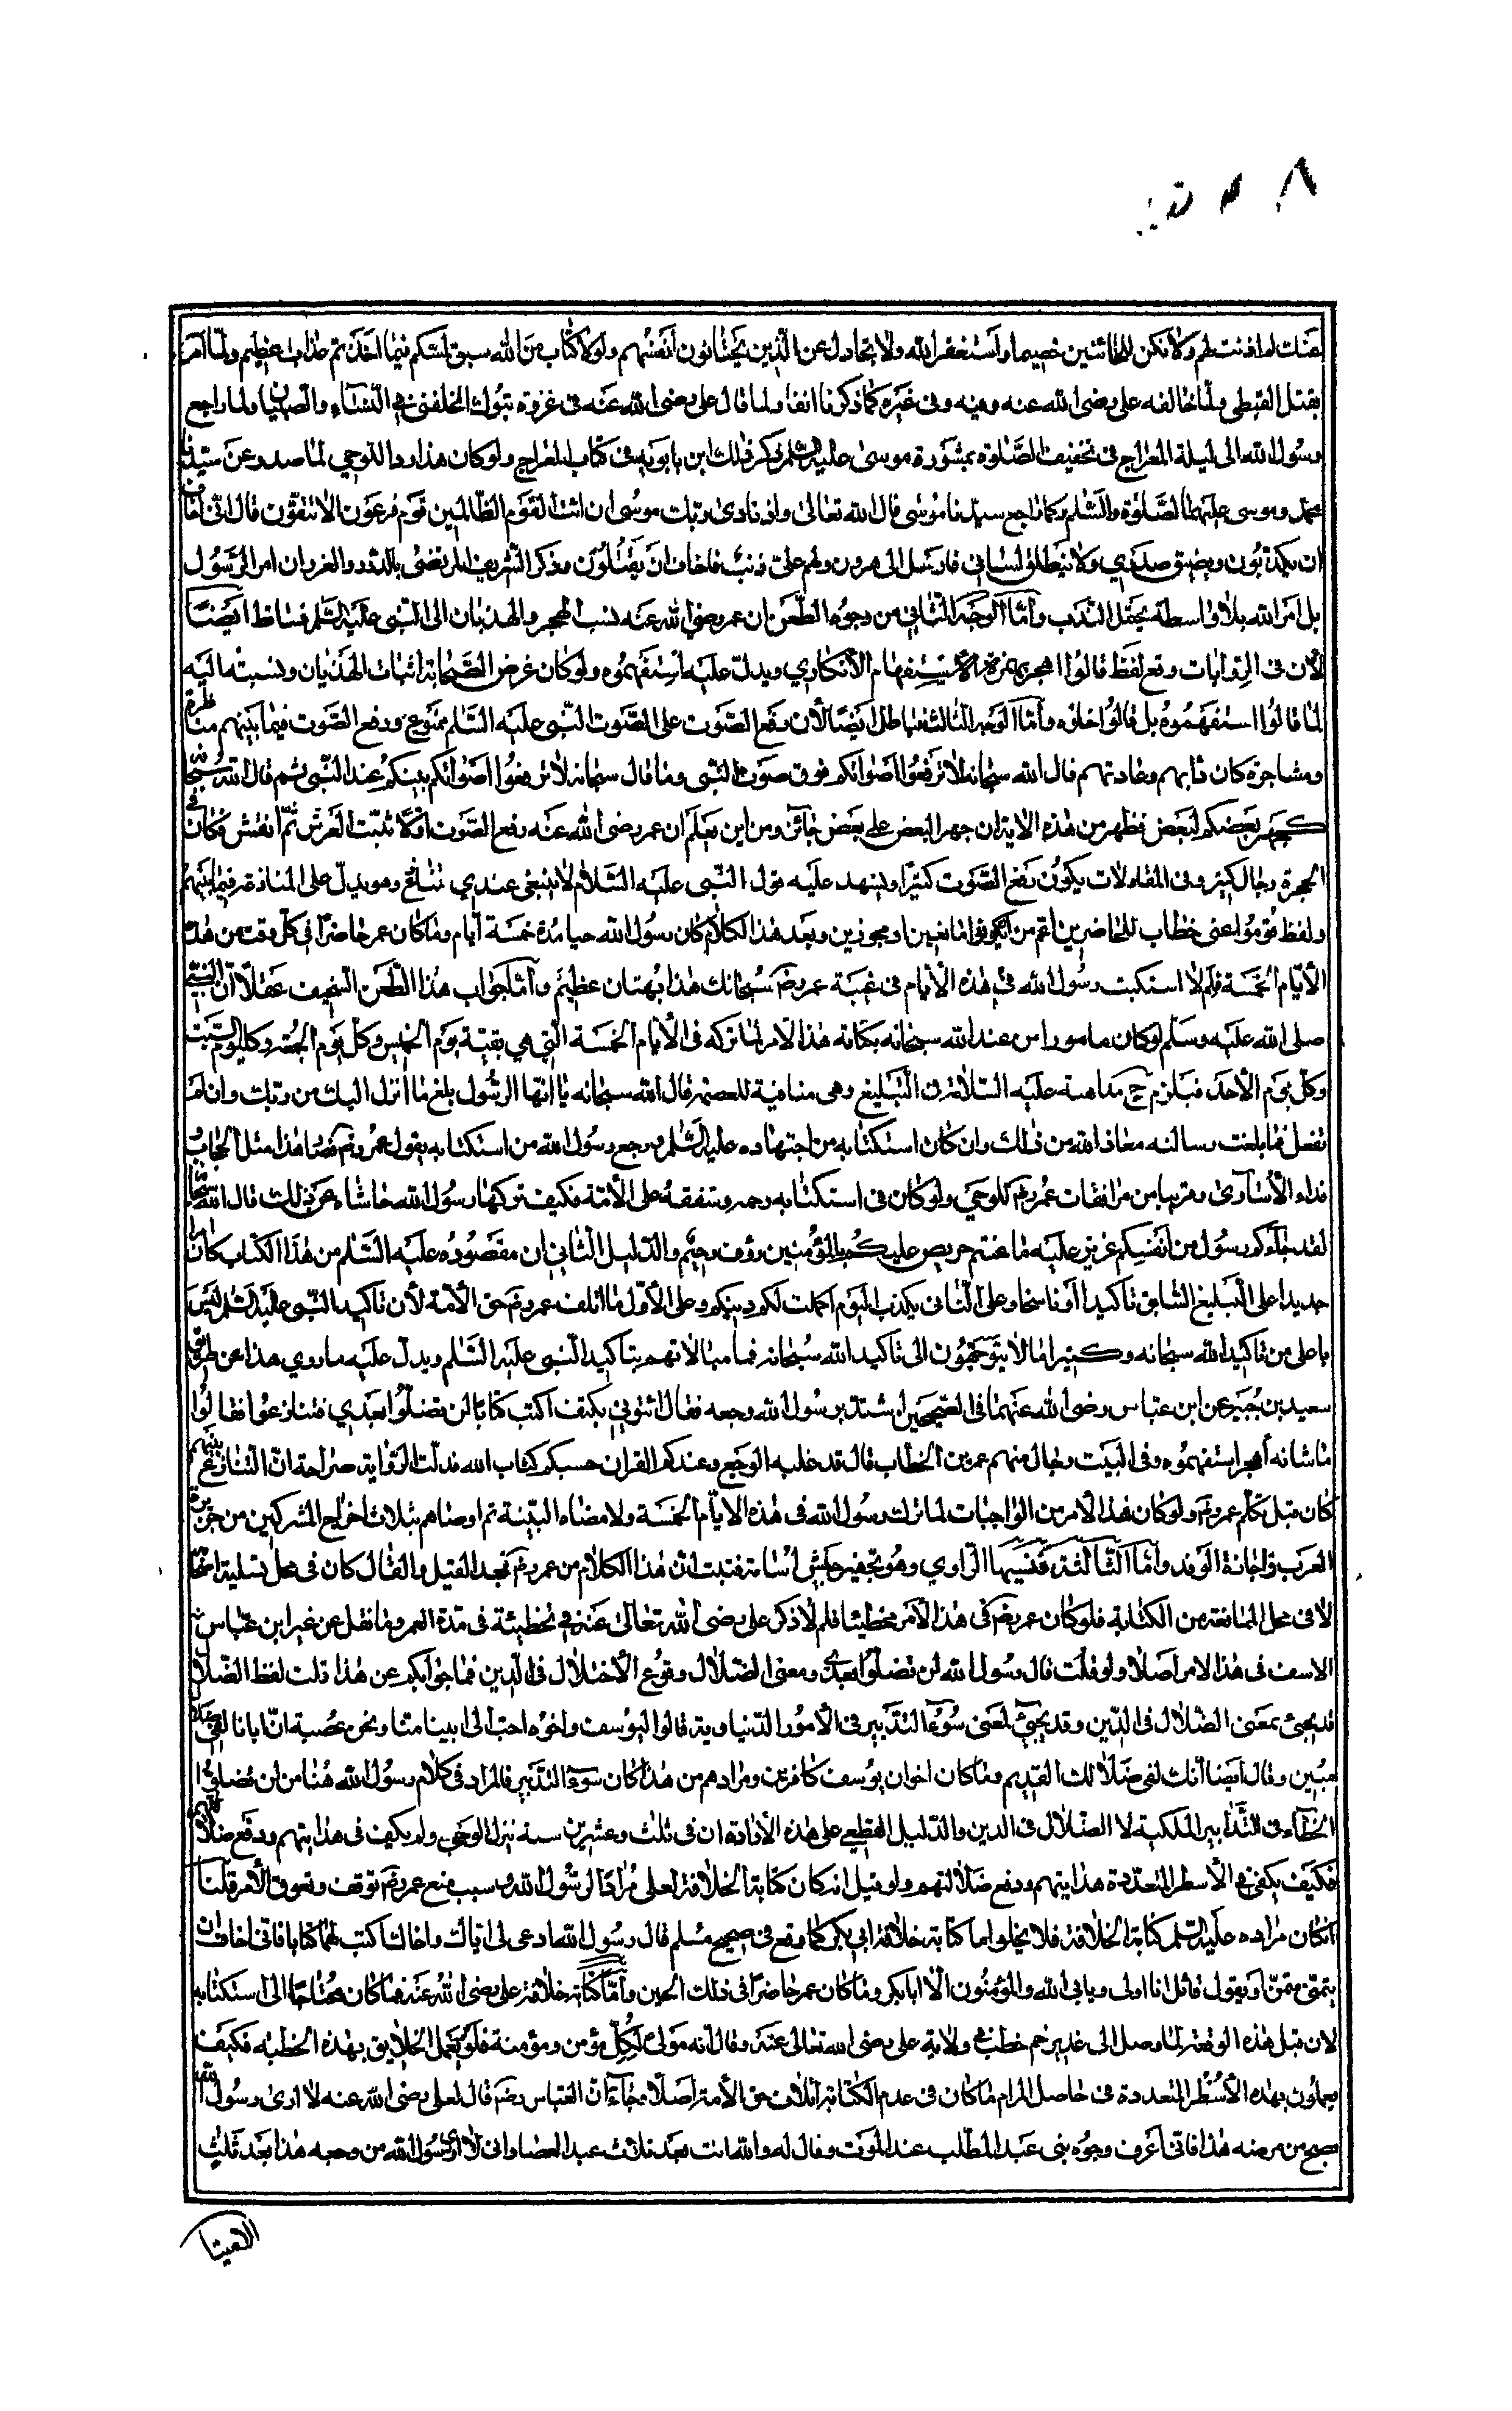 عنك لم اذنت لهم ولا تكن للخائنين خصيما واستغفر الله ولا تجادل عن الذين يختانون انفسهم ولولا كتاب من الله سبق لمسكم فيما اخذتم عذاب عظيم ولما امر
بقتل القبطى ولما خالفه على رضى الله عنه ومنه وفى غيره كما ذكرنا انفا ولما قال على رضى الله عنه فى غزوة تبوك اتخلفنى فى النساء والصبيان ولما راجع
رسول الله الى ليلة المعراج فى تخفيف الصلوة بمشورة موسى عليه السلم ذكر ذلك ابن بابويه فى كتاب المعراج ولو كان هذا ردا للوحي لما صدر عن سيدنا
محمد وموسى عليهما الصلوة والسلم وكما راجع سيدنا موسى قال الله تعالى واذ نادى ربك موسى ان ائت القوم الظالمين قوم فرعون الا تتقون قال انى اخاف
ان يكذبون ويضيق صدري ولا ينطلق لسانى فارسل الى هرون ولهم على ذنب فاخاف ان يقتلون وذكر الشريف المرتضى بالدرر والغرر ان امر الرسول
بل امر الله بلا واسطة يحتمل الندب وأما الوجه الثاني من وجوه الطعن ان عمر رضي الله عنه نسب الهجر والهذيان الى النبى عليه السلم فساقط ايضا
لأن فى الروايات وقع لفظ قالوا اهجر بهمزة الاستفهام الأنكاري ويدل عليه استفهموه ولو كان غرض الصحابة اثبات الهذيان ونسبته اليه
لما قالوا استفهموه بل قالوا خلوه وأما الوجه الثالث فباطل ايضا لأن رفع الصوت على الصوت النبى عليه السلم ممنوع ورفع الصوت فيما بينهم مناظرة
ومشاجرة كان دأبهم وعادتهم قال الله سبحانه لا ترفعوا اصواتكم فوق صوت النبى وما قال سبحانه لا ترفعوا اصواتكم بينكم عند النبى ثم قال الله سبحانه
كجهر بعضكم لبعض فظهر من هذه الاية ان جهر البعض على بعض جائز ومن اين يعلم ان عمر رضى الله عنه رفع الصوت اولا ثبت العرش ثم انقش وكان فى
الحجرة رجال كثير وفى المقاولات يكون رفع الصوت كثيرا ويشهد عليه قول النبى عليه السلام لا ينبغى عندي تنازع وهو يدل على المنازعة فيما بينهم
ولفظ قوموا عنى خطاب للحاضرين اعم من ان يكونوا مانعين او مجوزين وبعد هذا الكلام كان رسول الله حيا مدة خمسة أيام وما كان عمر حاضرا فى كل وقت من هذه
الأيام الخمسة فلم لا استكتب رسول الله فى هذه الأيام فى غيبة عمر رضم سبحانك هذا بهتان عظيم وأما جواب هذا الطعن السخيف عقلا أن النبى
صلى الله عليه وسلم لو كان مامورا من عند الله سبحانه بكتابة هذا الأمر لما تركه فى الأيام الخمسة التى هى بقية يوم الخميس وكل يوم الجمعة وكل يوم السبت
وكل يوم الأحد فيلزم ح مداهنة عليه السلام فى التبليغ وهى منافية للعصمة قال الله سبحانه يا ايها الرسول بلغ ما انزل اليك من ربك وان لم
تفعل فما بلغت رسالته معاذ الله من ذلك وان كان استكتابه من اجتهاده عليه السلم ورجع رسول الله من استكتابه بقول عمر رضم فصار هذا مثل الحجاب و
فداء الأسارى وغيرها من مرافقات عمر رضم للوحي ولو كان فى استكتابه رحمة وشفقة على الأمة فكيف تركها رسول الله حاشاه عن ذلك قال الله سبحانه
لقد جاءكم رسول من انفسكم عزيز عليه ما عنتم حريص عليكم بالمؤمنين رؤف رحيم والدليل الثاني ان مقصوده عليه السلم من هذا الكتاب كان امرا
جديدا على التبليغ السابق تاكيدا او ناسخا وعلى الثانى يكذب اليوم اكملت لكم دينكم وعلى الأول ما اتلف عمر رضم حق الأمة لأن تاكيد النبى عليه السلم ليس
باعلى من تاكيد الله سبحانه وكثيرا ما لا يتوجهون الى تاكيد الله سبحانه فما مبالاتهم بتاكيد النبى عليه السلم ويدل عليه ما روي هذا عن طريق
سعيد بن جبير عن ابن عباس رضى الله عنهما فى الصحيحين اشتد برسول الله وجعه فقال ائتونى بكتف اكتب كتابا لن تضلوا بعدي فتنازعوا فقالوا
ما شانه أهجر استفهموه وفى البيت رجال منهم عمر بن الخطاب قال قد غلبه الوجع وعندكم القران حسبكم كتاب الله فدلت الرواية صراحة ان التنازع بينهم
كان قبل تكلم عمر رضم ولو كان هذا الأمر من الواجبات لما ترك رسول الله فى هذه الايام الخمسة ولامضاه البتة ثم اوصاهم بثلاث اخراج المشركين من جزيرة
العرب واجازة الوفد وأما الثالثة فنسيها الراوي وهو تجهيز جيش اسامة فثبت ان هذا الكلام من عمر رضم بعد القيل والقال كان فى محل تسلية
لا فى محل الممانعة من الكتابة فلو كان عمر رضم فى هذا الأمر مخطئا فلم لا ذكر على رضى الله تعالى عنه فى تخطيئة فى مدة العمر وما نقل عن غير ابن عباس
الاسف فى هذا الامر اصلا ولو قلت قال رسول الله لن تضلوا بعدي ومعنى الضلال وقوع الأختلال فى الدين فما جوابكم عن هذا قلت لفظ الضلال
قد يجيئ بمعنى الضلال فى الدين وقد يجيئ لمعنى سوء التدبير فى الأمور الدنياوية قالوا ليوسف واخوه احب الى ابينا منا ونحن عصبة ان ابانا لفى ضلال
مبين وقال ايضا انك لفى ضلالك القديم وما كان اخوان يوسف كافرين ومرادهم من هذا كان سوء التدبير فالمراد فى كلام رسول الله هنا من لن تضلوا
الخطاء فى التدابير الملكية لا الضلال فى الدين والدليل القطعي على هذه الأرادة ان فى ثلث وعشرين سنة نزل الوحى ولم يكف فى هدايتهم ودفع ضلالتهم
فكيف يكفى فى الأسطر المتعددة هدايتهم ودفع ضلالتهم ولو قيل انه كان كتابة الخلافة لعلى مرادا لرسول الله و بسبب منع عمر رضم توقف وتعوق الأمر قلنا
ان كان مراده عليه السلم كتابة الخلافة فلا يخلو اما كتابة خلافة ابى بكر كما وقع فى صحيح مسلم قال رسول الله ادعى لى اباك واخاك اكتب لهما كتابا فانى اخاف ان
يتمنى متمن او يقول قائل انا اولى ويابى الله والمؤمنون الا ابا بكر وما كان عمر حاضرا فى ذلك الحين وأما كتابة خلافة على رضى الله عنه فما كان محتاجا الى استكتابه
لان قبل هذه الوقعة لما وصل الى غدير خم خطب فى ولاية على رضى الله تعالى عنه وقال انه مولى لكل مؤمن ومؤمنة فلو يعمل الخلايق بهذه الخطبة فكيف
يعملون بهذه الأسطر المتعددة فى حاصل المرام ما كان فى عدم الكتابة اتلاف حق الأمة اصلا وجاء ان العباس رضم قال لعلى رضى الله عنه لا ارى رسول الله
يصح من مرضه هذا فانى اعرف وجوه بنى عبد المطلب عند الموت وقال له والله انت بعد ثلاث عبد العصا وانى لا ارى رسول الله من وجعه هذا بعد ثلث